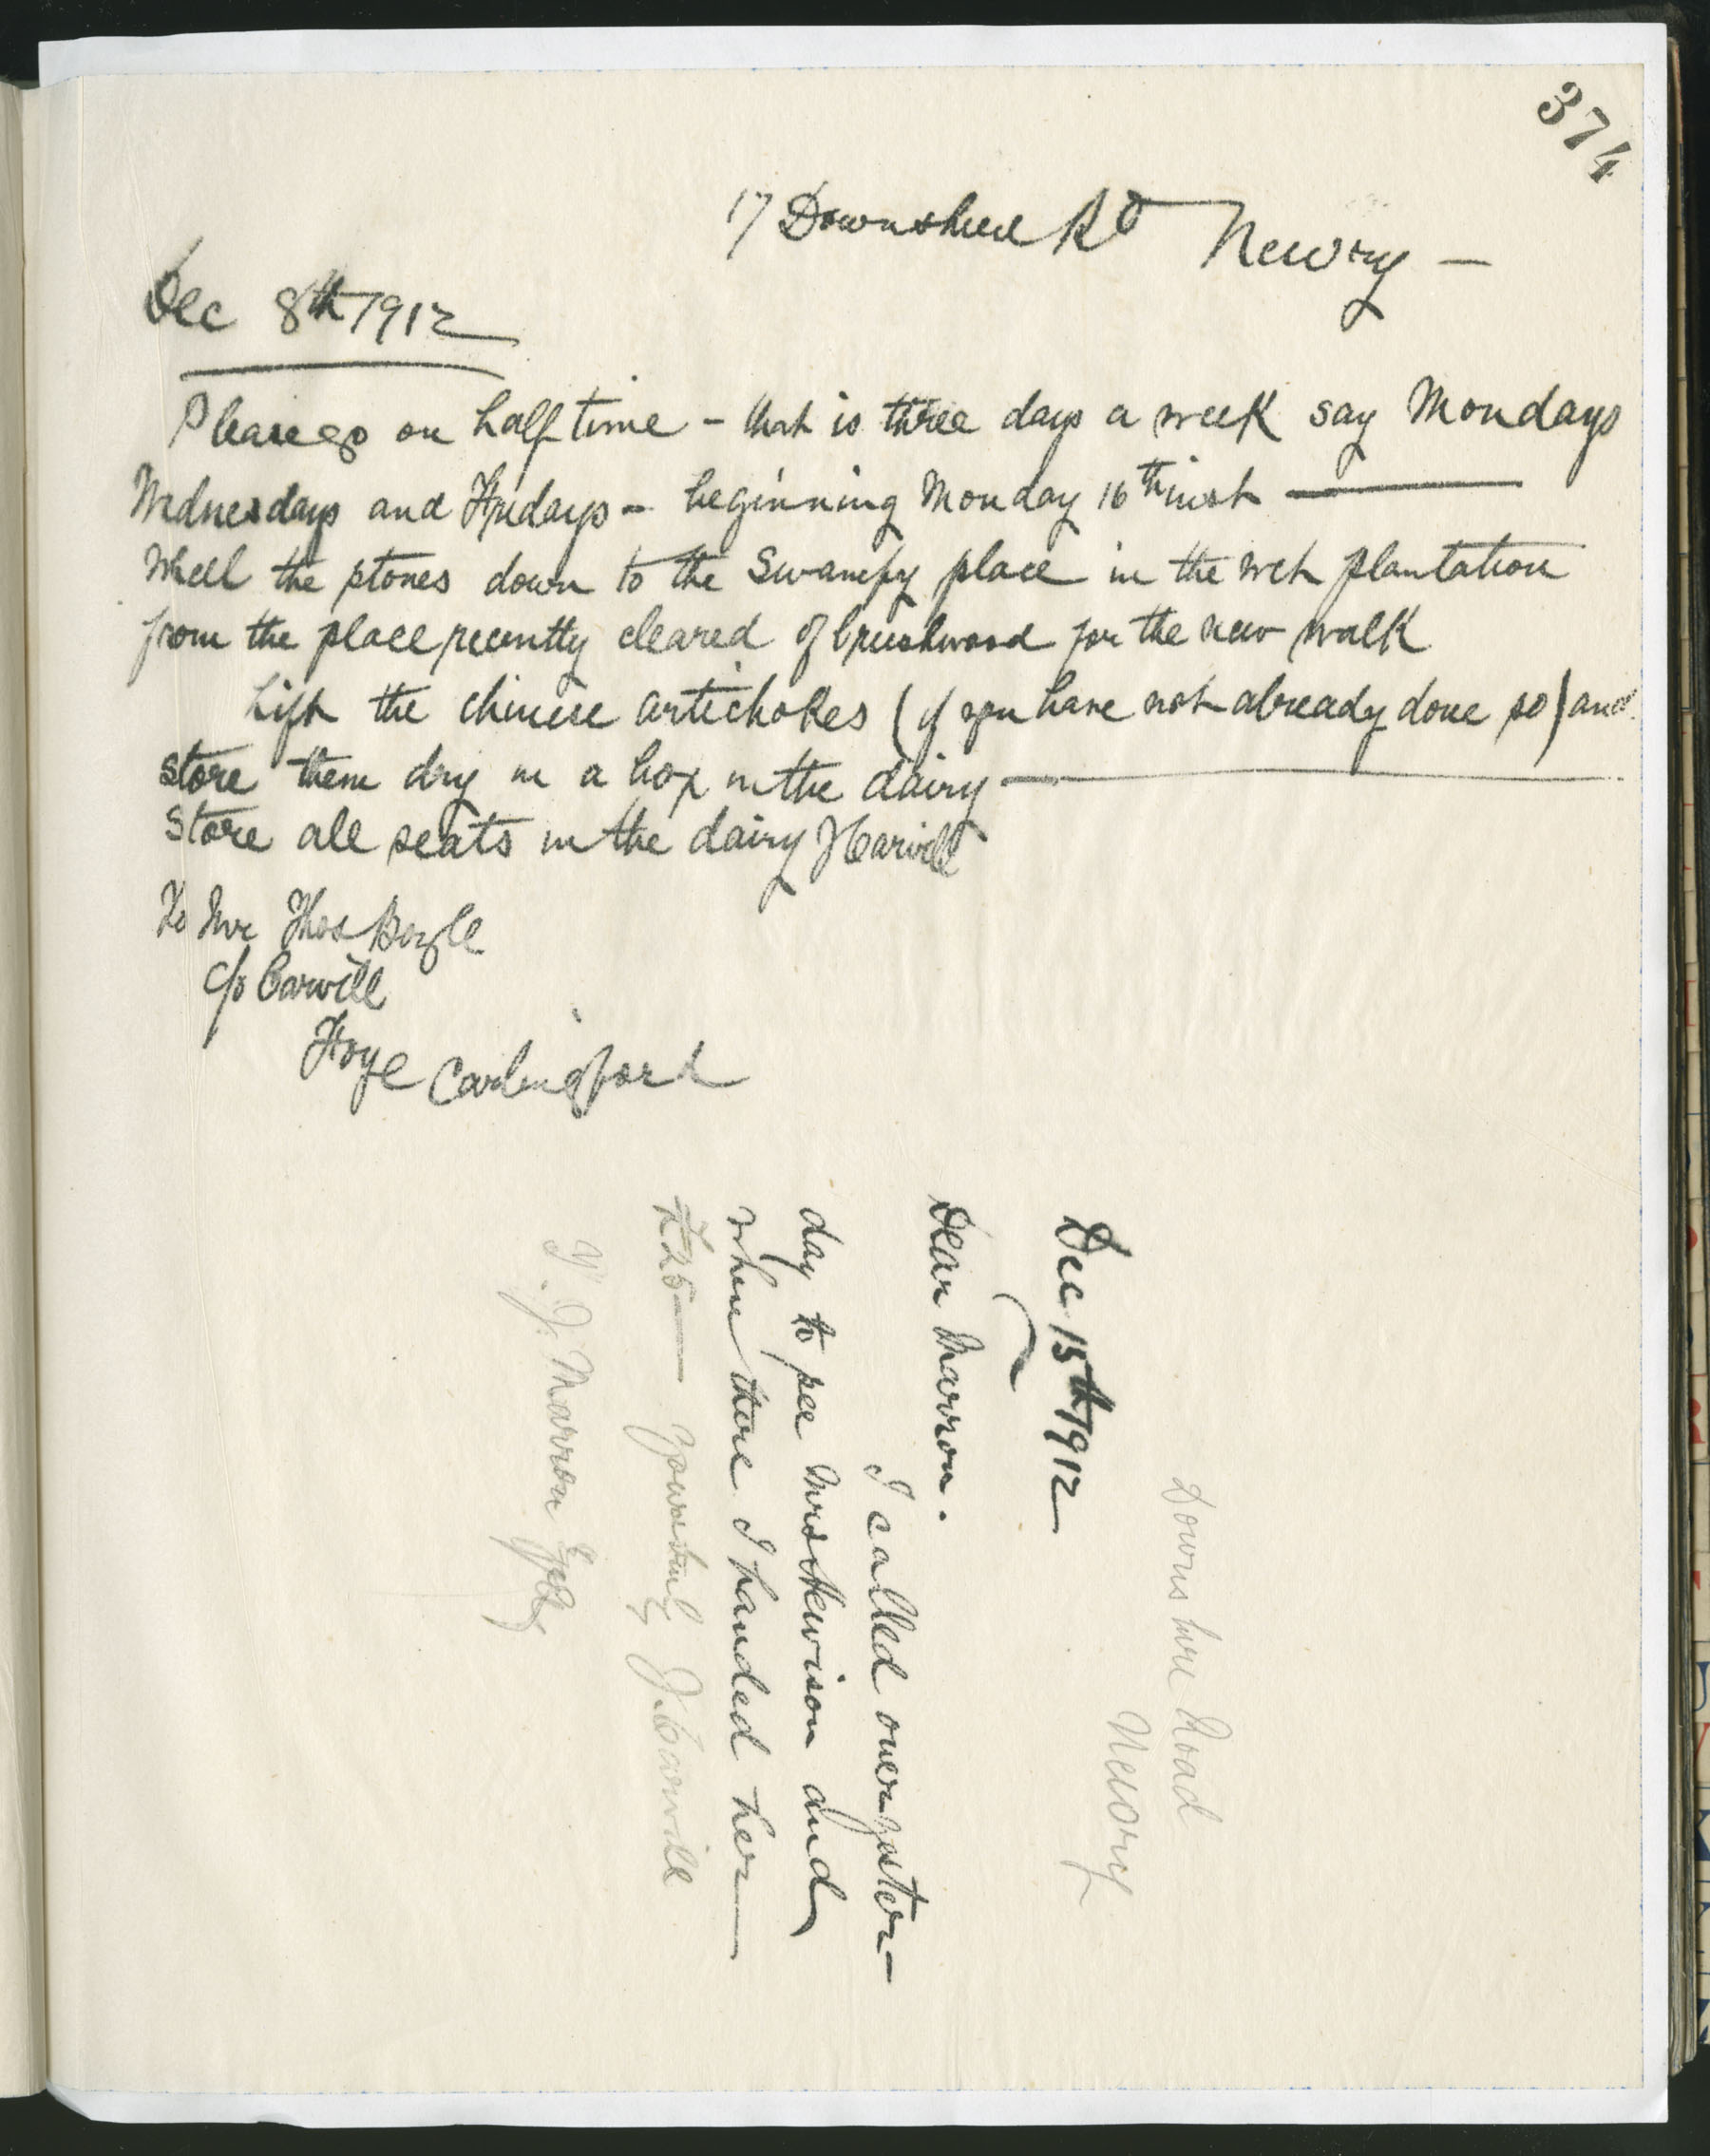 374
17 Downshire Rd Newry —
Dec 8th 1912
Please go on half time - that is three days a week say Mondays
Wednesdays and Fridays - beginning Monday 16th inst —
Wheel the stones down to the swampy place in the wet plantation
from the place recently cleared of brushwood for the new walk
Lift the chinese artichokes (if you have not already done so) and
store them dry in a box in the dairy —
Store all seats in the dairy JCarvill
To Mr Thos Boyle
c/o Carvill
Ffoye Carlingford
Downshire Road
Newry
Dec 15th 1912
Dear Marron.
I called over yester-
day to see Mrs and
when there I handed her —
£25 — J. Carvill
J. Marron Esq